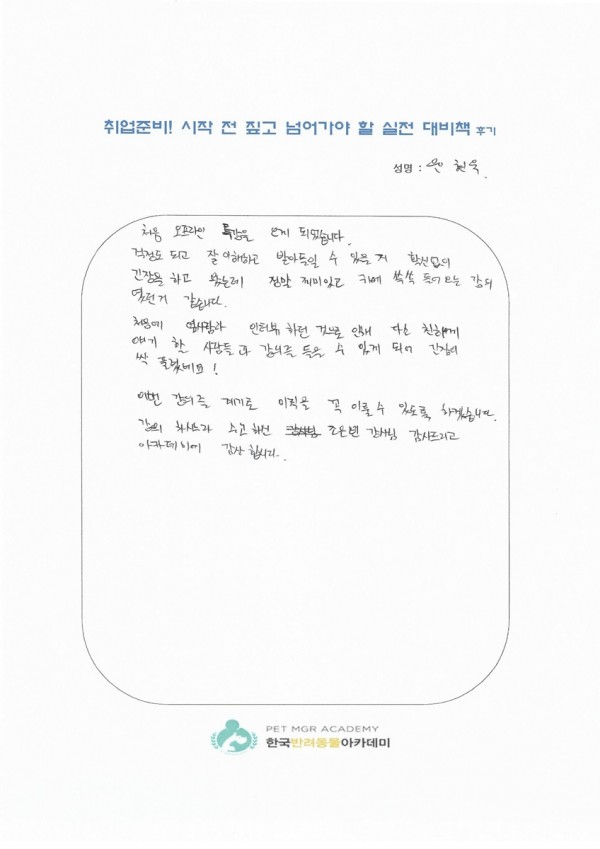 취업준비! 시작 전 짚고 넘어가야 할 실전 대비책 후기
성명 :
처음 오프라인 특강을 오게 되었습니다.
걱정도 되고 잘 이해하고 받아들일 수 있을지 확신없이
긴장을 하고 왔는데 정말 재미있고 귀에 쏙쏙 들어오는 강의
였던거 같습니다.
처음에 옆사람과 인터뷰 하던 것으로 인해 다른 친하게
얘기 할 사람들과 강의를 들을 수 있게 되어 긴장이
싹 풀렸네요!
이번 강의를 계기로 이직을 꼭 이룰 수 있도록 하겠습니다.
강의 하시느라 수고하신 조은별 강사님 감사드리고
아카데미에 감사합니다.
PET MGR ACADEMY
한국반려동물아카데미